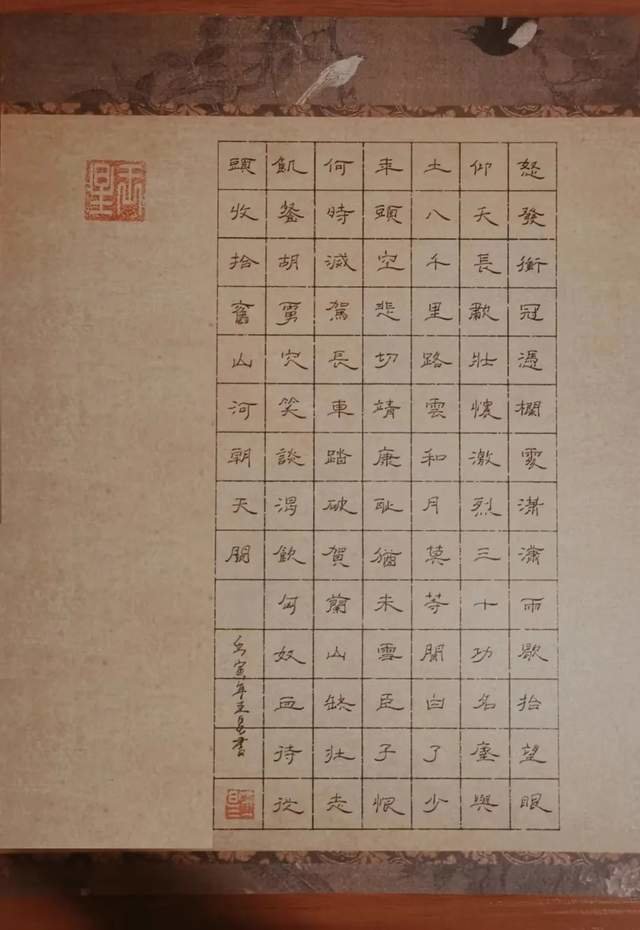 怒發衝冠憑欄處瀟瀟雨歇抬望眼
仰天長歎壯懷激烈三十功名塵與
土八千里路雲和月莫等閒白了少
年頭空悲切靖康耻猶未雪臣子恨
何時滅駕長車踏破賀蘭山缺壯志
飢餐胡虜肉笑談渴飲匈奴血待從
頭收拾舊山河朝天闕
壬寅年星書